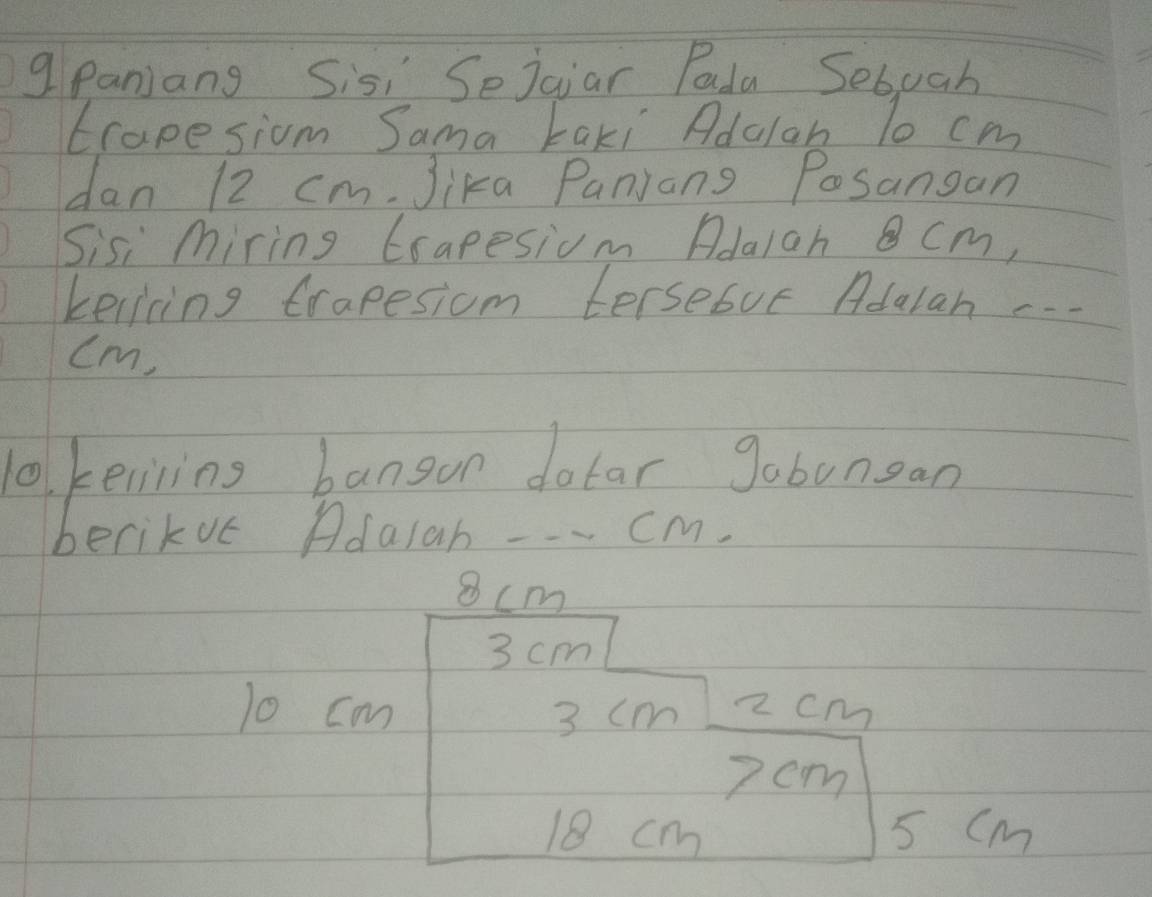 9 Panjang Sisi Sejajar Pada Sebuah
trapesium Sama kaki Adalah 10 cm
dan 12 cm. Jika Panjang Pasangan
Sisi Miring trapesium Adalah 8 cm,
keliling trapesium tersebut Adalah ---
cm.
10. keliling bangun datar gabungan
berikut Adalah --- cm.
8 cm
3 cm
10 cm 3 cm 2 cm
7 cm
18 cm 5 cm